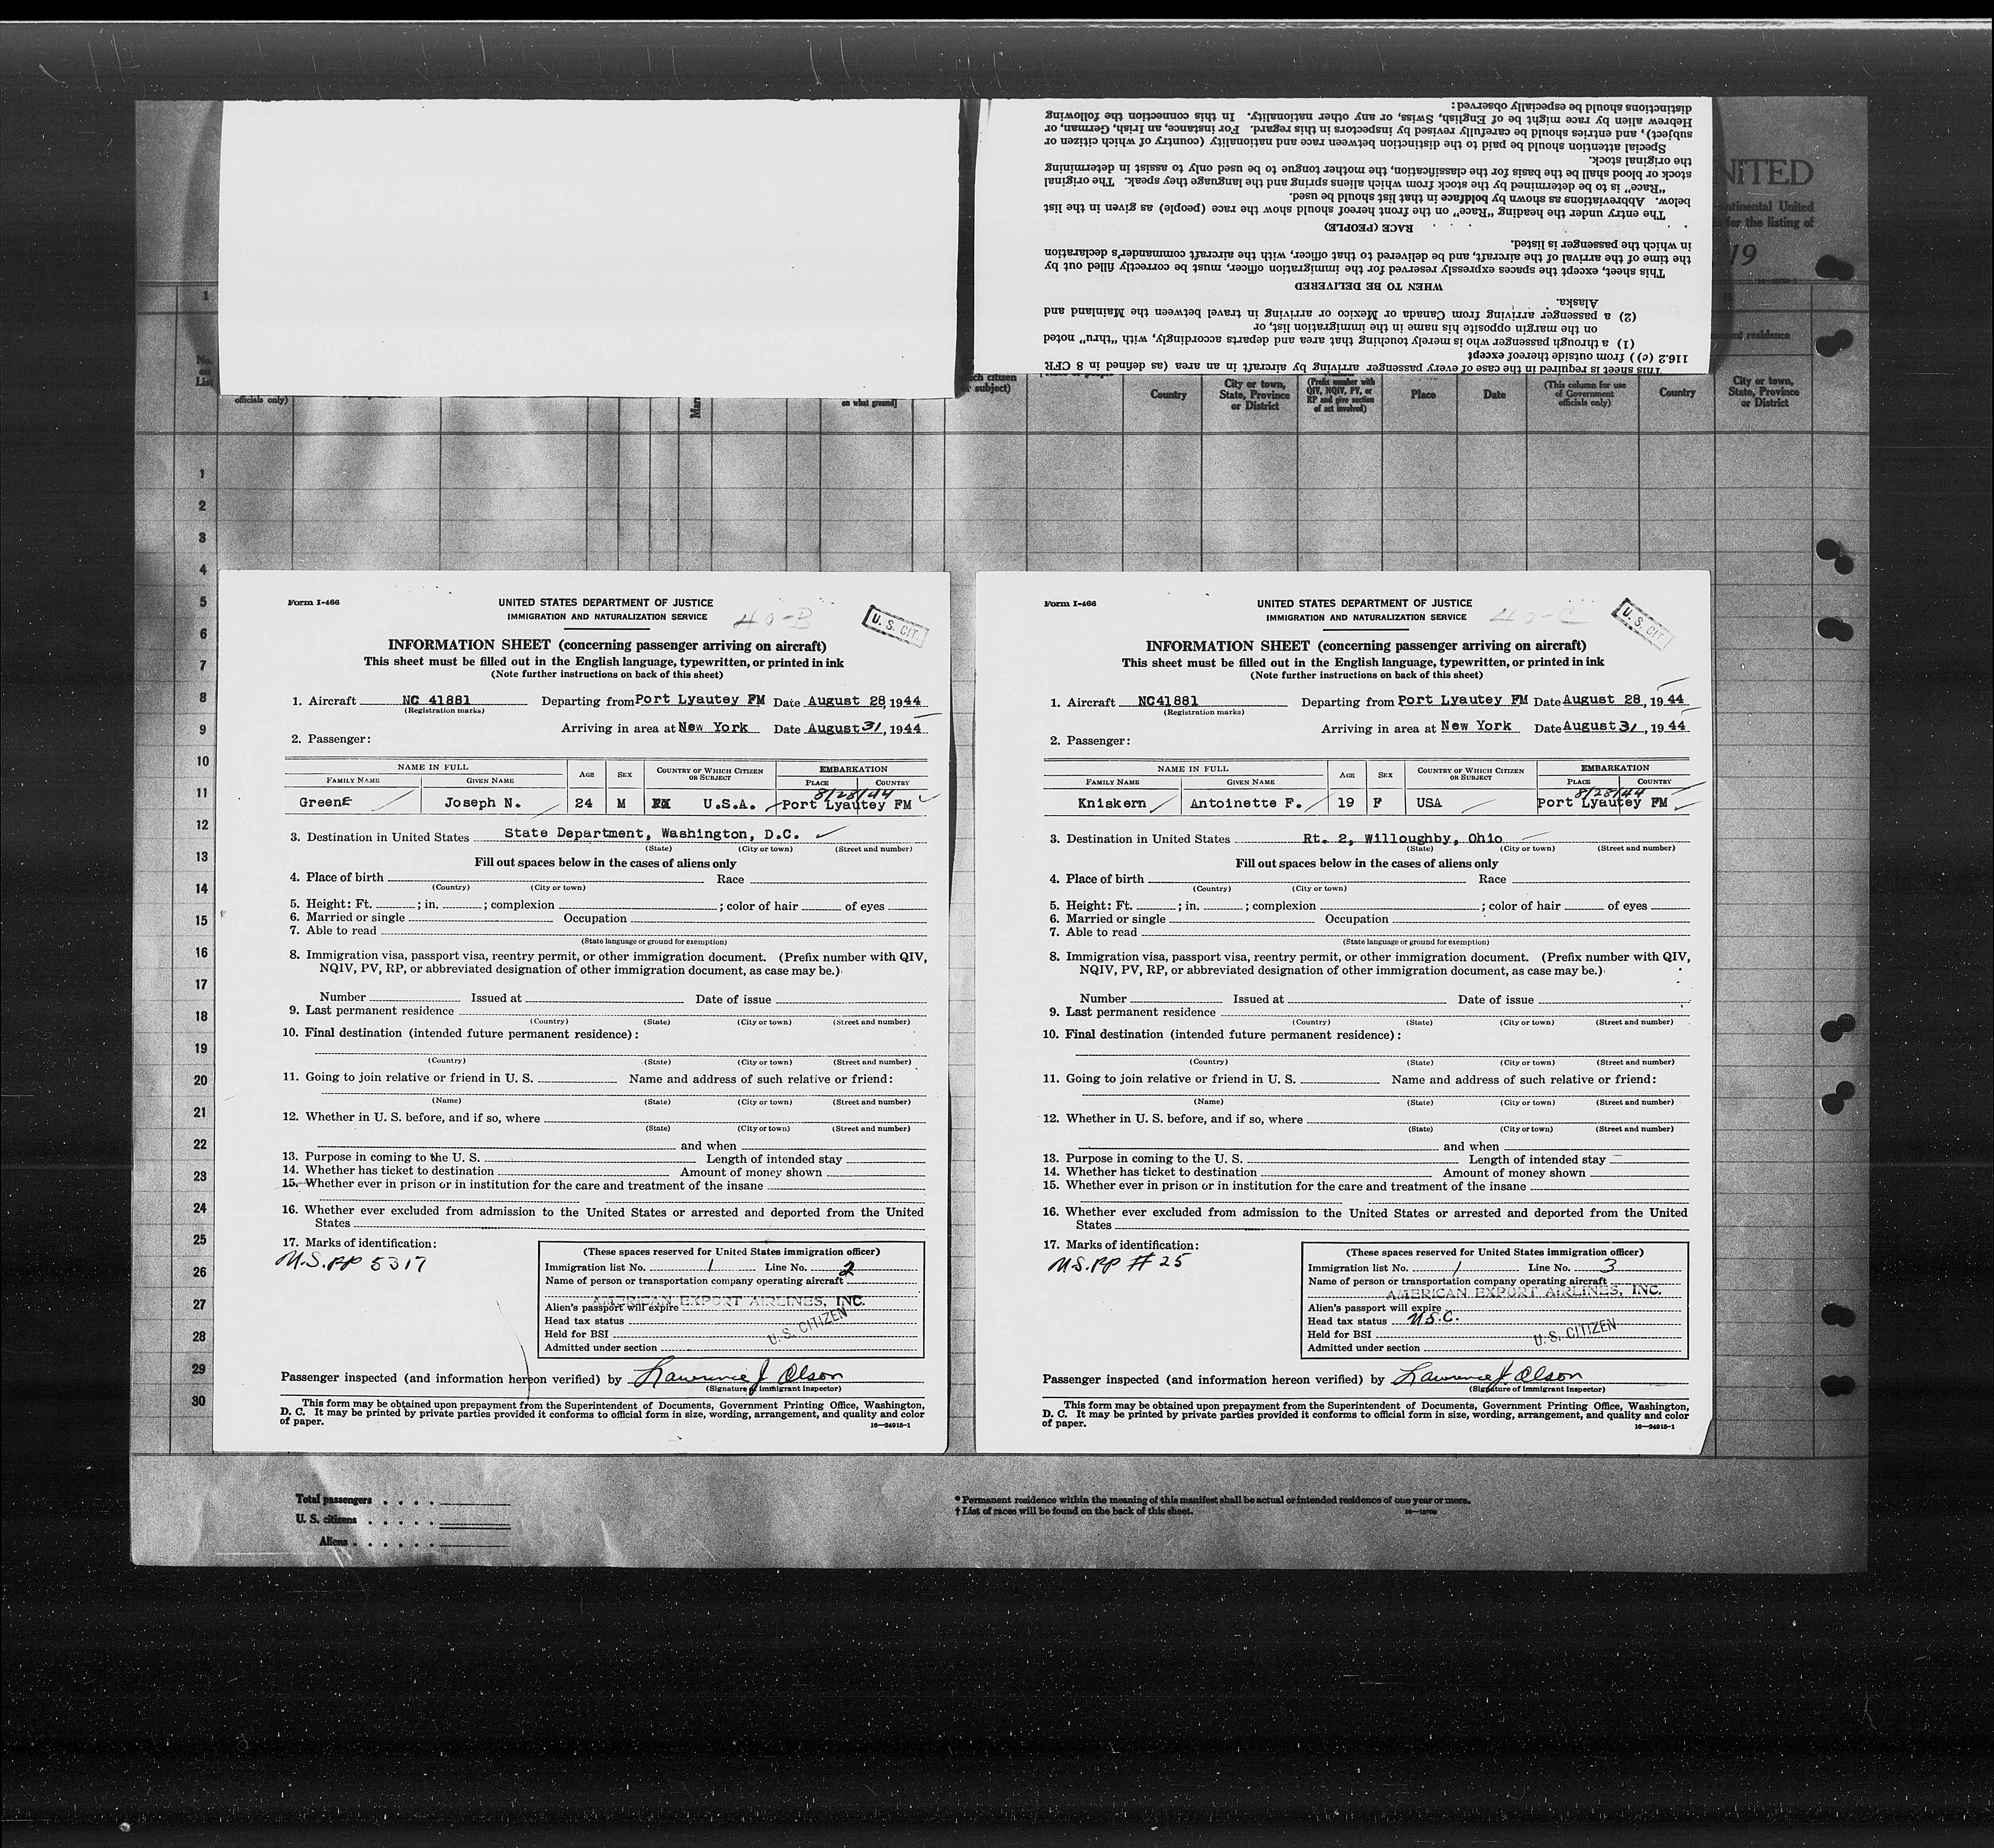 distinctions should be especially observed:
Hebrew alien by race might be of English, Swiss, or any other nationality. In this connection the following
subject), and entries should be carefully revised by inspectors in this regard. For instance, an Irish, German, or
Special attention should be paid to the distinction between race and nationality (country of which citizen or
the original stock.
stock or blood shall be the basis for the classification, the mother tongue to be used only to assist in determining
"Race" is to be determined by the stock from which aliens spring and the language they speak. The original
below. Abbreviations as shown by boldface in that list should be used.
The entry under the heading "Race" on the front hereof should show the race (people) as given in the list
RACE (PEOPLE)
in which the passenger is listed.
the time of the arrival of the aircraft, and be delivered to that officer, with the aircraft commander's declaration
This sheet, except the spaces expressly reserved for the immigration officer, must be correctly filled out by
WHEN TO BE DELIVERED
Alaska.
(2) a passenger arriving from Canada or Mexico or arriving in travel between the Mainland and
on the margin opposite his name in the immigration list, or
(1) a through passenger who is merely touching that area and departs accordingly, with "thru" noted
116.2 (c)) from outside thereof except
This sheet is required in the case of every passenger arriving by aircraft in an area (as defined in 8 CFR
NITED
ntinental United
for the listing of
19
1
residence
No. on List
officials only)
on what ground]
ch citizen
subject)
Country
City or town, State, Province or District
(Prefix number with QIV, NQIV, PV, or RP and give section of act involved)
Place
Date
(This column for use of Government officials only)
Country
City or town, State, Province or District
1
2
3
4
5
6
7
8
9
10
11
12
13
14
15
16
17
18
19
20
21
22
23
24
25
26
27
28
29
30
Form I-466
UNITED STATES DEPARTMENT OF JUSTICE
IMMIGRATION AND NATURALIZATION SERVICE
40-B
U. S. CIT.
INFORMATION SHEET (concerning passenger arriving on aircraft)
This sheet must be filled out in the English language, typewritten, or printed in ink
(Note further instructions on back of this sheet)
1. Aircraft NC 41881 Departing from Port Lyautey FM Date August 28 1944
(Registration marks)
Arriving in area at New York Date August 31, 1944
2. Passenger:
NAME IN FULL
AGE
SEX
COUNTRY OF WHICH CITIZEN OR SUBJECT
EMBARKATION
FAMILY NAME
GIVEN NAME
PLACE
COUNTRY
8/28/44
GreenE Joseph N. 24 M U.S.A. Port Lyautey FM
3. Destination in United States State Department, Washington, D.C.
(State) (City or town) (Street and number)
Fill out spaces below in the cases of aliens only
4. Place of birth Race
(Country) (City or town)
5. Height: Ft. ; in. ; complexion ; color of hair of eyes
6. Married or single Occupation
7. Able to read
(State language or ground for exemption)
8. Immigration visa, passport visa, reentry permit, or other immigration document. (Prefix number with QIV,
NQIV, PV, RP, or abbreviated designation of other immigration document, as case may be.)
Number Issued at Date of issue
9. Last permanent residence
(Country) (State) (City or town) (Street and number)
10. Final destination (intended future permanent residence):
(Country) (State) (City or town) (Street and number)
11. Going to join relative or friend in U. S. Name and address of such relative or friend:
(Name) (State) (City or town) (Street and number)
12. Whether in U. S. before, and if so, where
(State) (City or town) (Street and number)
and when
13. Purpose in coming to the U. S. Length of intended stay
14. Whether has ticket to destination Amount of money shown
15. Whether ever in prison or in institution for the care and treatment of the insane
16. Whether ever excluded from admission to the United States or arrested and deported from the United
States
17. Marks of identification:
U.S. PP 5317
(These spaces reserved for United States immigration officer)
Immigration list No. 1 Line No. 2
Name of person or transportation company operating aircraft
AMERICAN EXPORT AIRLINES, INC.
Alien's passport will expire
Head tax status
Held for BSI
U. S. CITIZEN
Admitted under section
Passenger inspected (and information hereon verified) by Lawrence J Olson
(Signature of immigrant inspector)
This form may be obtained upon prepayment from the Superintendent of Documents, Government Printing Office, Washington,
D. C. It may be printed by private parties provided it conforms to official form in size, wording, arrangement, and quality and color
of paper.
16—24915-1
Form I-466
UNITED STATES DEPARTMENT OF JUSTICE
IMMIGRATION AND NATURALIZATION SERVICE
40-C
U. S. CIT.
INFORMATION SHEET (concerning passenger arriving on aircraft)
This sheet must be filled out in the English language, typewritten, or printed in ink
(Note further instructions on back of this sheet)
1. Aircraft NC41881 Departing from Port Lyautey FM Date August 28, 1944
(Registration marks)
Arriving in area at New York Date August 31, 1944
2. Passenger:
NAME IN FULL
AGE
SEX
COUNTRY OF WHICH CITIZEN OR SUBJECT
EMBARKATION
FAMILY NAME
GIVEN NAME
PLACE
COUNTRY
8/28/44
Kniskern Antoinette F. 19 F USA Port Lyautey FM
3. Destination in United States Rt. 2, Willoughby, Ohio
(State) (City or town) (Street and number)
Fill out spaces below in the cases of aliens only
4. Place of birth Race
(Country) (City or town)
5. Height: Ft. ; in. ; complexion ; color of hair of eyes
6. Married or single Occupation
7. Able to read
(State language or ground for exemption)
8. Immigration visa, passport visa, reentry permit, or other immigration document. (Prefix number with QIV,
NQIV, PV, RP, or abbreviated designation of other immigration document, as case may be.)
Number Issued at Date of issue
9. Last permanent residence
(Country) (State) (City or town) (Street and number)
10. Final destination (intended future permanent residence):
(Country) (State) (City or town) (Street and number)
11. Going to join relative or friend in U. S. Name and address of such relative or friend:
(Name) (State) (City or town) (Street and number)
12. Whether in U. S. before, and if so, where
(State) (City or town) (Street and number)
and when
13. Purpose in coming to the U. S. Length of intended stay
14. Whether has ticket to destination Amount of money shown
15. Whether ever in prison or in institution for the care and treatment of the insane
16. Whether ever excluded from admission to the United States or arrested and deported from the United
States
17. Marks of identification:
U.S. PP # 25
(These spaces reserved for United States immigration officer)
Immigration list No. 1 Line No. 3
Name of person or transportation company operating aircraft
AMERICAN EXPORT AIRLINES, INC.
Alien's passport will expire
Head tax status U.S.C.
Held for BSI
U. S. CITIZEN
Admitted under section
Passenger inspected (and information hereon verified) by Lawrence J. Olson
(Signature of immigrant inspector)
This form may be obtained upon prepayment from the Superintendent of Documents, Government Printing Office, Washington,
D. C. It may be printed by private parties provided it conforms to official form in size, wording, arrangement, and quality and color
of paper.
16—24915-1
Total passengers
U. S. citizens
Aliens
* Permanent residence within the meaning of this manifest shall be actual or intended residence of one year or more.
† List of races will be found on the back of this sheet.